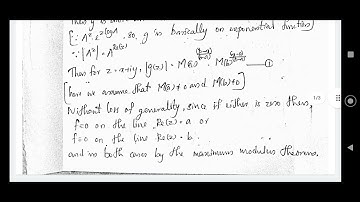 Then g is
[∵ A^z = e^{z log A}. So, g is basically an exponential function]
∵ |A^z| = A^{Re(z)}
Then for z = x+iy, |g(z)| = M(a)^{(b-x)/(b-a)} M(b)^{(x-a)/(b-a)} —①
[here we assume that M(a) ≠ 0 and M(b) ≠ 0]
Without loss of generality, since if either is zero then,
1/3
f=0 on the line, Re(z) = a or
f=0 on the line Re(z) = b.
and in both cases by the maximum modulus theorem,